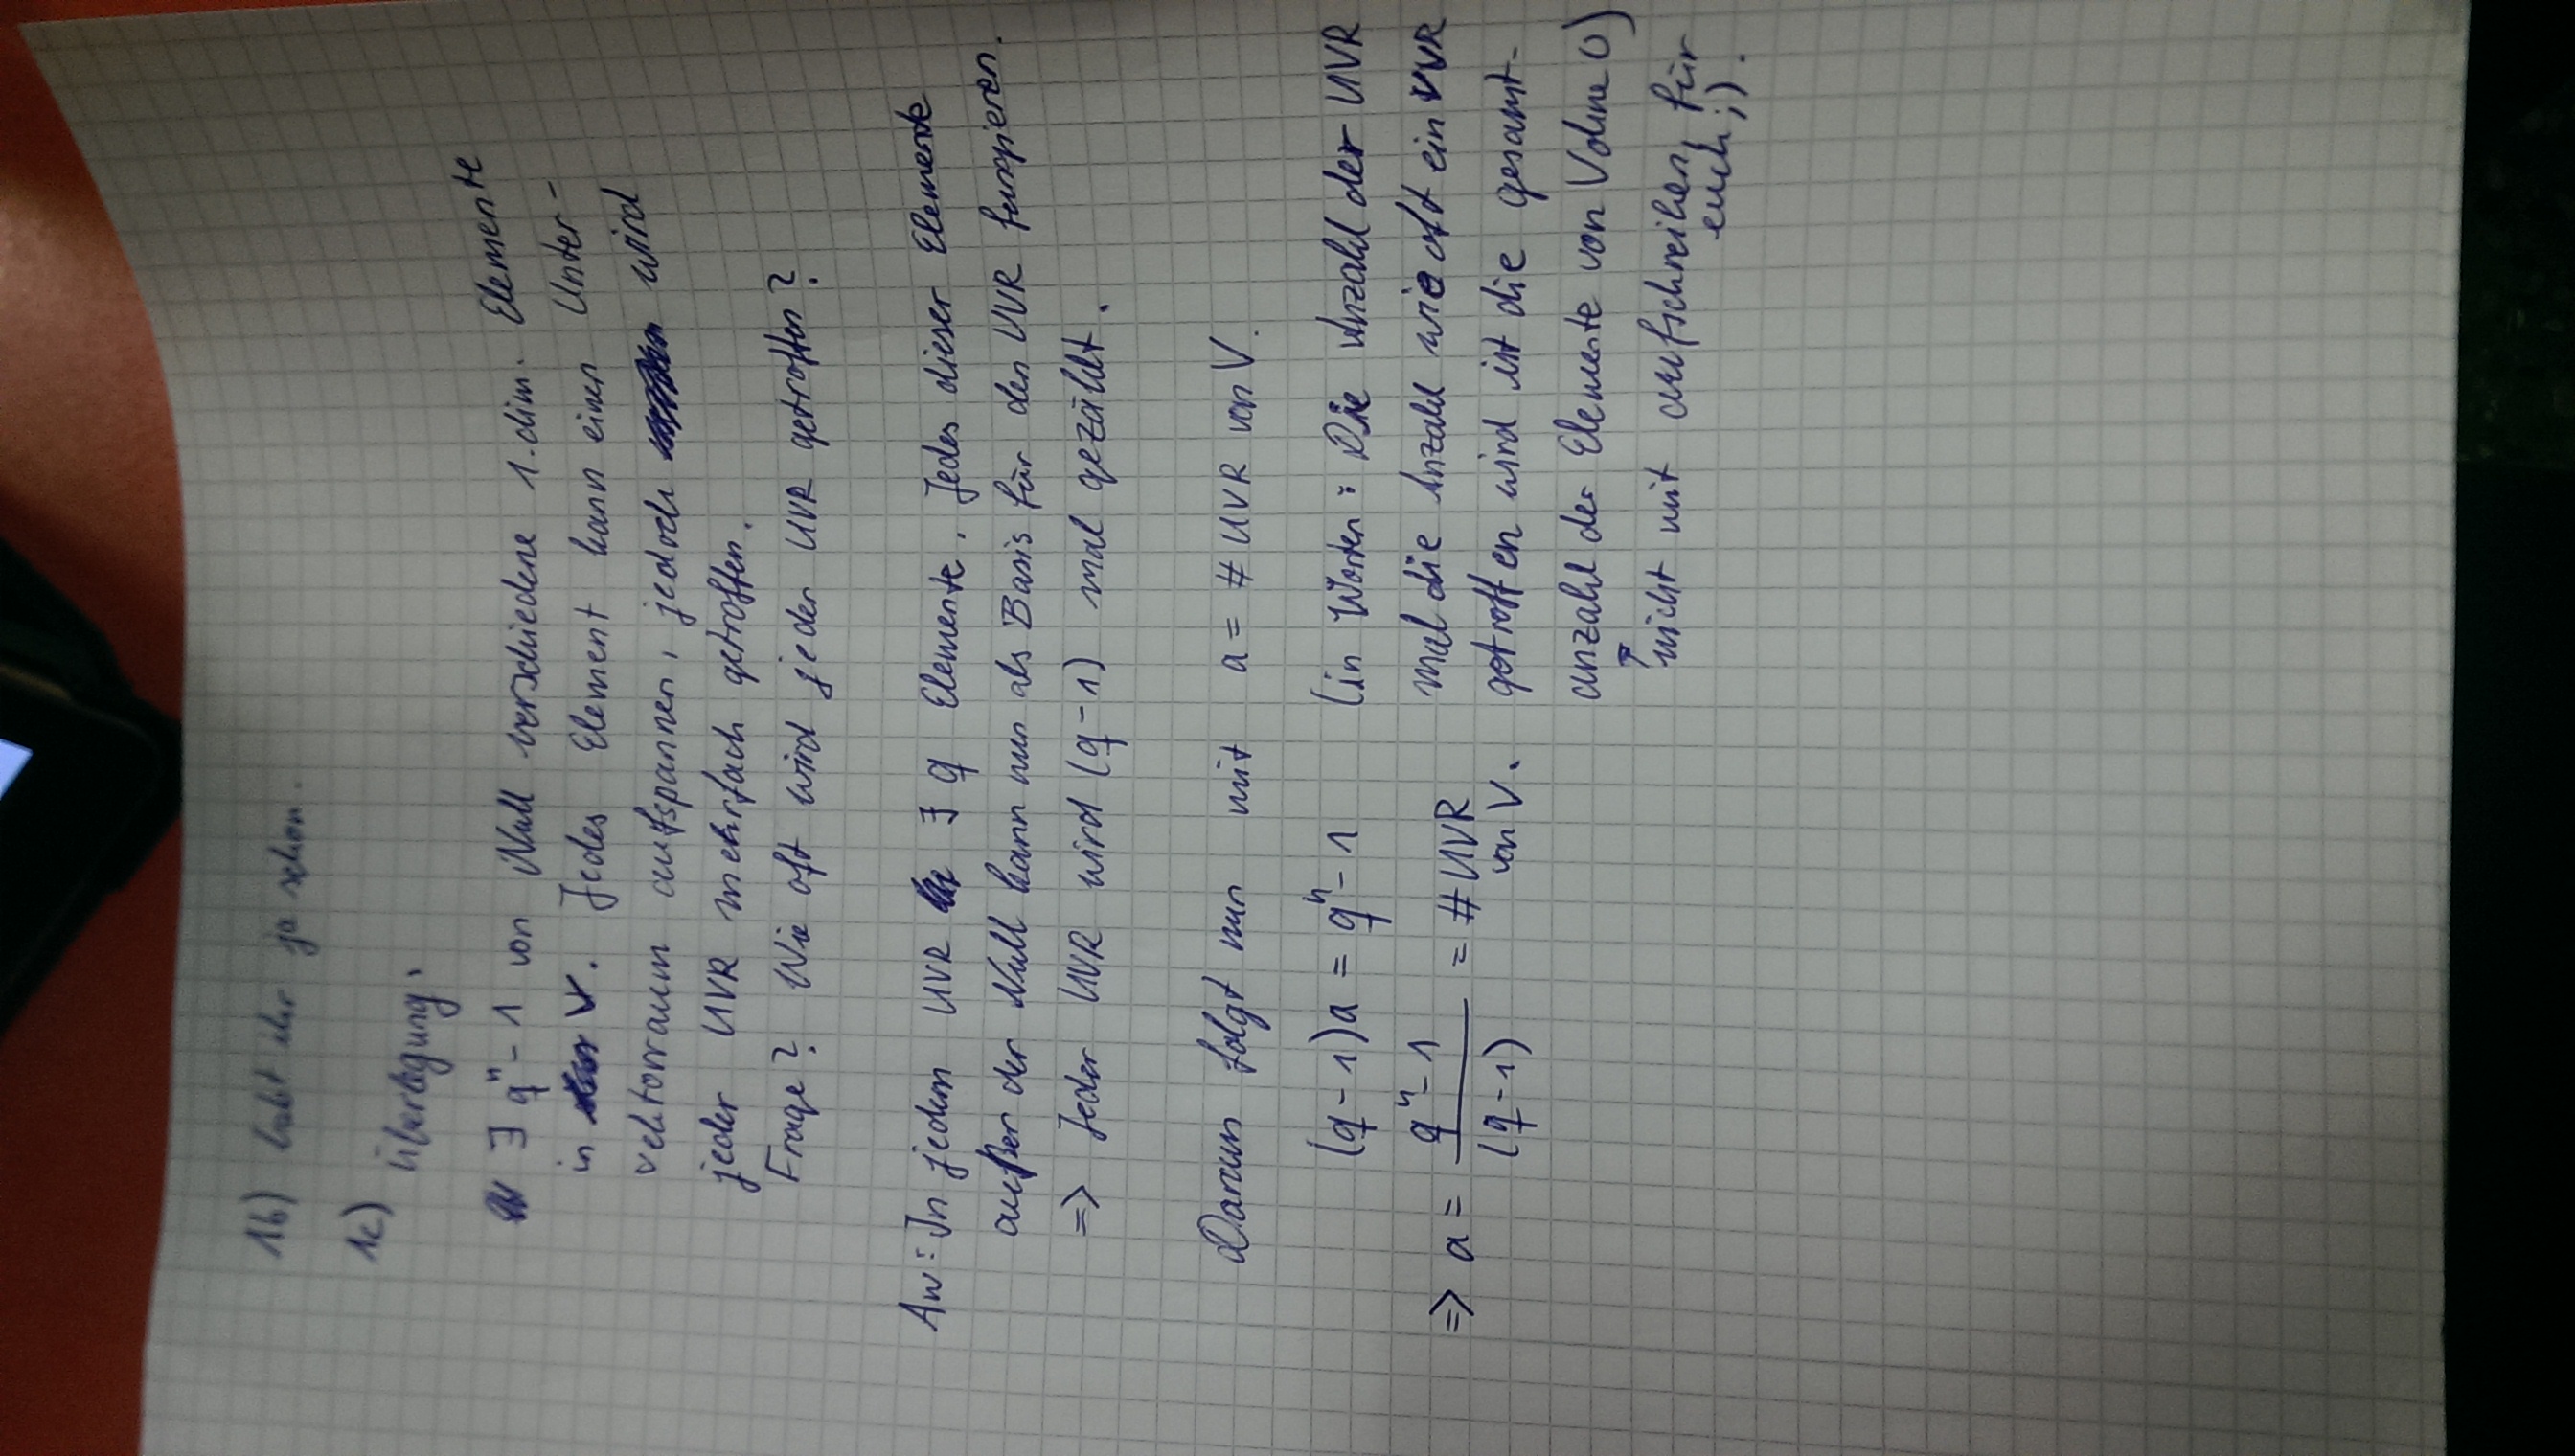 1b) habt ihr ja schon.
1c) Überlegung,
∃ qⁿ-1 von Null verschiedene 1-dim. Elemente
in V. Jedes Element kann einen Unter-
vektorraum aufspannen, jedoch wird
jeder UVR mehrfach getroffen.
Frage? Wie oft wird jeder UVR getroffen?
Aw: In jedem UVR ∃ q Elemente. Jedes dieser Elemente
außer der Null kann nun als Basis für den UVR fungieren.
=> Jeder UVR wird (q-1) mal gezählt.
Darum folgt nun mit a = # UVR von V.
(q-1)a = qⁿ-1
=> a = qⁿ-1 / (q-1) = # UVR von V.
(in Worten: Die Anzahl der UVR
mal die Anzahl wie oft ein UVR
getroffen wird ist die gesamt-
anzahl der Elemente von V ohne 0)
nicht mit aufschreiben, für
euch ;).